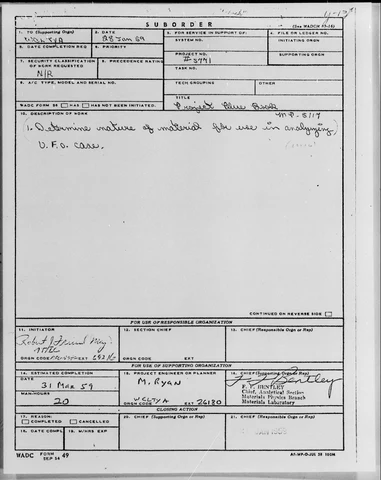 SUBORDER
(See WADCM
1. TO (Supporting Orgn)
2. DATE
28 Jan 59
3. FOR SERVICE IN SUPPORT OF:
SYSTEM NO.
4. FILE OR LEDGER NO.
INITIATING ORGN
5. DATE COMPLETION REQ
6. PRIORITY
PROJECT NO.
#5771
SUPPORTING ORGN
7. SECURITY CLASSIFICATION OF WORK REQUESTED
N/R
8. PRECEDENCE RATING
TASK NO.
9. A/C TYPE, MODEL AND SERIAL NO.
TECH GROUPING
OTHER
WADC FORM HAS HAS NOT BEEN INITIATED.
TITLE
Project Blue Book
10. DESCRIPTION OF WORK
MP-5117
(1. Determine nature of material for use in analyzing)
U.F.O. case.
CONTINUED ON REVERSE SIDE
FOR USE OF RESPONSIBLE ORGANIZATION
11. INITIATOR
Robert J Friend Maj.
ORGN EXT
12. SECTION CHIEF
ORGN CODE
13. CHIEF (Responsible Orgn or Rep)
FOR USE OF SUPPORTING ORGANIZATION
14. ESTIMATED COMPLETION
DATE
31 Mar 59
MAN-HOURS
20
15. PROJECT ENGINEER OR PLANNER
M. Ryan
ORGN EXT
26180
16. CHIEF (Supporting Orgn or Rep)
F. F. BENTLEY
Chief, Analytical Section
Materials Physics Branch
Materials Laboratory
CLOSING ACTION
17. REASON:
COMPLETED CANCELLED
18. DATE COMPL
19. M/HRS EXP
20. CHIEF (Supporting Orgn or Rep)
21. CHIEF (Responsible Orgn or Rep)
WADC FORM SEP 54 49